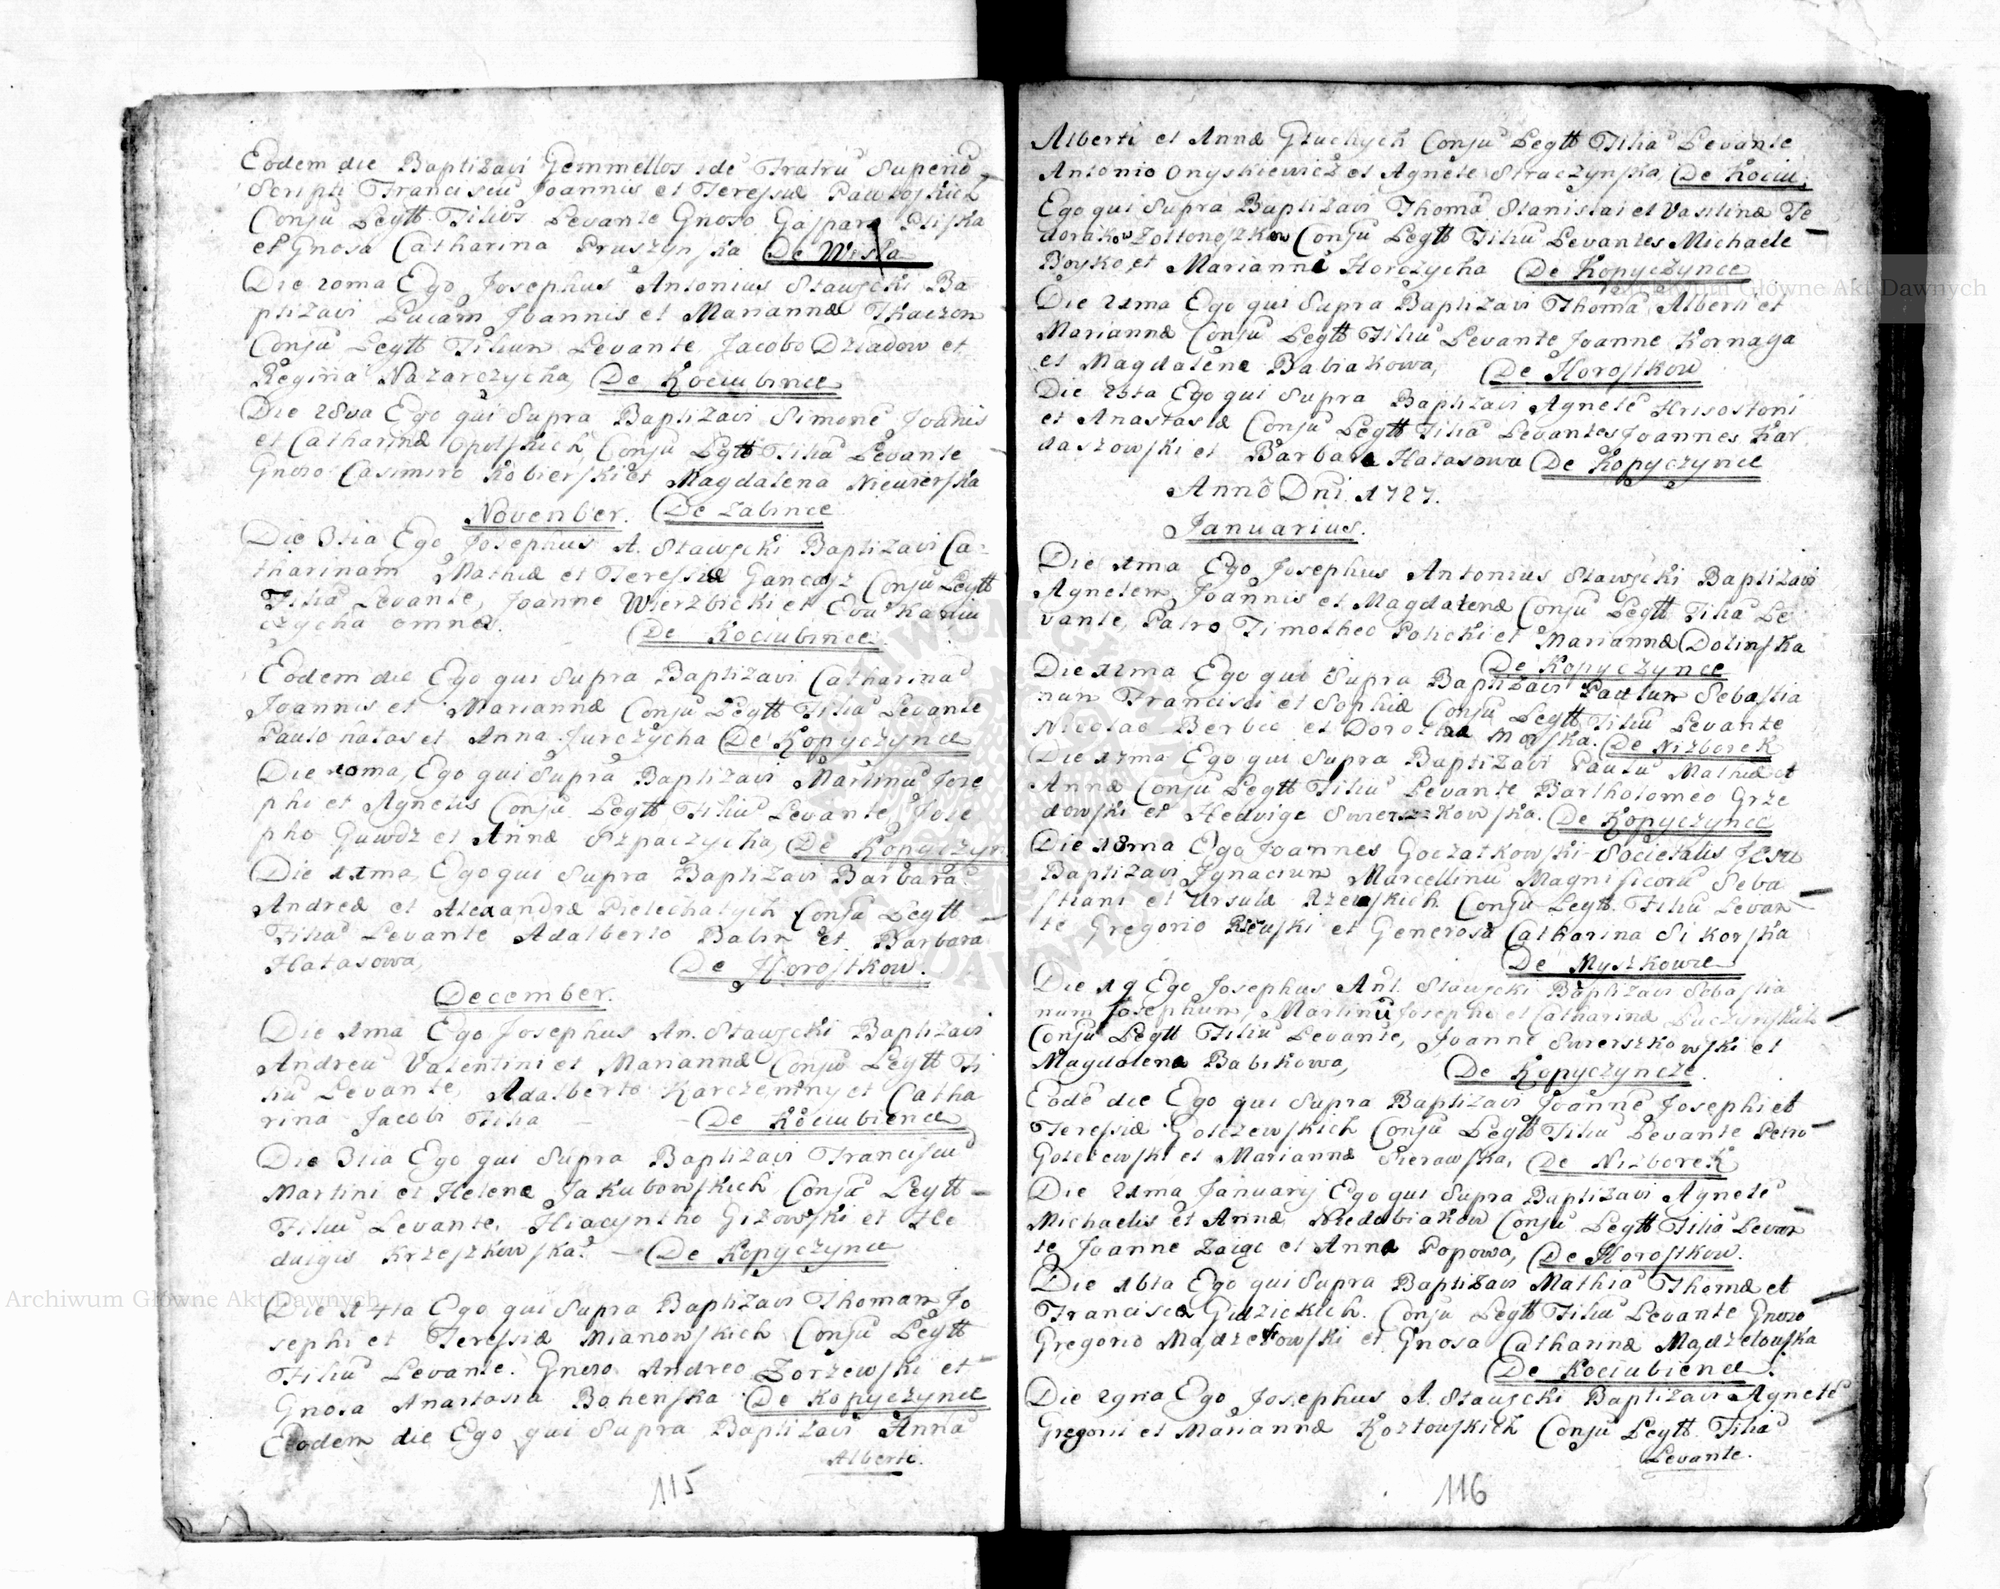 Eodem die Baptizavi Gemmellos ide Fratrũ Superiũ
Scripti Francisciũ Joannis et Teressiæ Pawłoskich
Conjũ Legtt Filios Levante Gnoso Gaspare Pliska
et Gnosa Catharina Pruszynska De Wisła
Die 20ma Ego Josephus Antonius Stawscki Ba
ptizavi Lucam Joannis et Mariannæ Tkaczon
Conjũ Legtt Filium Levante Jacobo Dziadow et
Regina Nazarczycha, De Kociubince
Die 28va Ego qui Supra Baptizavi Simonẽ Joãnis
et Catharinæ Opolskich, Conjũ Lgtt Filiũ Levante
Gnoso Casimiro Kobierski et Magdalena Niewierska
November. De Łabince
Die 3tia Ego Josephus A. Stawscki Baptizavi Ca-
tharinam Mathiæ et Teressiæ Gancasz Conjũ Legtt
Filiã Levante, Joanne Wierzbicki et Eva
czycha omnes. De Kociubince
Eodem die Ego qui Supra Baptizavi Catharinã
Joannis et Mariannæ Conjũ Legtt Filiã Levante
Paulo Hałas et Anna Jurczycha De Kopyczynce
Die 10ma, Ego qui Supra Baptizavi Martinũ Jose
phi et Agnetis Conjũ Legtt Filiũ Levante, Jose
pho Gawdz et Annæ Szpaczycha, De Kopyczyn
Die 11ma, Ego qui Supra Baptizavi Barbarã
Andreæ et Alexandræ Pielechatych Conjũ Legtt
Filiã Levante Adalberto Babin et Barbara
Hałasowa, De Horostkow.
December.
Die 1ma Ego Josephus An. Stawscki Baptizavi
Andreũ Valentini et Mariannæ Conjũ Legtt Fi
liũ Levante, Adalberto Karczemny et Catha
rina Jacobi Filia De Kociubience
Die 3tia Ego qui Supra Baptizavi Franciscũ
Martini et Helenæ Jakubowskich Conjũ Legtt
Filiũ Levante, Hiacyntho Gizowski et He
duigis Krzeszkowska. De Kopyczynce
Die 14ta Ego qui Supra Baptizavi Thomam Jo
sephi et Teressiæ Mianowskich Conjũ Legtt
Filiũ Levante. Gnoso Andreo Zorzewski et
Gnosa Anastasia Bohenska De Kopyczynce
Eodem die Ego qui Supra Baptizavi Annã
Alberti.
115
Alberti et Annæ Głuchych Conjũ Legtt Filiã Levante
Antonio Onyskiewicz et Agnete Straczynska, De Kociu:
Ego qui Supra Baptizavi Thomã Stanislai et Vasilinæ Fe
dorakow Zołtonoszkow Conjũ Legtt Filiũ Levantes Michaele
Boyko, et Marianne Horczycha De Kopyczynce
Die 21ma Ego qui Supra Baptizavi Thomã Alberti et
Mariannæ Conjũ Legtt Filiũ Levante Joanne Kornaga
et Magdalena Babiakowa, De Horostkow
Die 25ta Ego qui Supra Baptizavi Agnetẽ Hrisostoni
et Anastasiæ Conjũ Legtt Filiã Levantes Joannes Kar
daszowski et Barbara Hałasowa De Kopyczynce
Anno Dni 1727.
Januarius.
Die 1ma Ego Josephus Antonius Stawscki Baptizavi
Agnetem, Joannis et Magdalenæ Conjũ Legtt Filiã Le
vante, Patro Timotheo Polichi et Mariannæ Dolinska
De Kopyczynce
Die 12ma Ego qui Supra Baptizavi Paulum Sebastia
num Francisci et Sophiæ Conjũ Legtt Filiũ Levante
Nicolao Berbec et Dorothea Morska. De Nizborek
Die 17ma Ego qui Supra Baptizavi Paulũ Mathiæ et
Annæ Conjũ Legtt Filiũ Levante Bartholomeo Grze
dowski et Hedvige Swierszkowska. De Kopyczynce
Die 18ma Ego Joannes Goczałkowski Societatis JESU
Baptizavi Ignacium Marcellinũ Magnificorũ Seba
stiani et Ursulæ Rzewskich Conjũ Legtt. Filiũ Levan
te Gregorio Rzewski et Generosa Catharina Sikorska
De Myszkowce
Die 19 Ego Josephus Ant. Stawscki Baptizavi Sebastia
num Josephum, Martinũ Josephi et Catharinæ Luczynskich
Conjũ Legtt Filiũ Levante, Joanne Swierszkowski et
Magdalena Babikowa, De Kopyczyncze
Eodẽ die Ego qui Supra Baptizavi Joannẽ Josephi et
Teressiæ Golczewskich Conjũ Legtt Filiũ Levante Petro
Golczewski et Marianna Sierawska, De Nizborek
Die 21ma Januarij Ego qui Supra Baptizavi Agnetẽ
Michaelis et Annæ Niedobiakow Conjũ Legtt Filiã Levan
te Joanne Zaige et Anna Popowa, De Horostkow.
Die 26ta Ego qui Supra Baptizavi Mathiã Thomæ et
Franciscæ Gudzickich. Conjũ Legtt Filiũ Levante Gnoso
Gregorio Madzelowski et Gnosa Catharinæ Madzelowska
De Kociubience.
Die 29na Ego Josephus A. Stawscki Baptizavi Agnetẽ
Gregorii et Mariannæ Kozłowskich Conjũ Legtt Filiã
Levante.
116
Archiwum Główne Akt Dawnych
Archiwum Główne Akt Dawnych